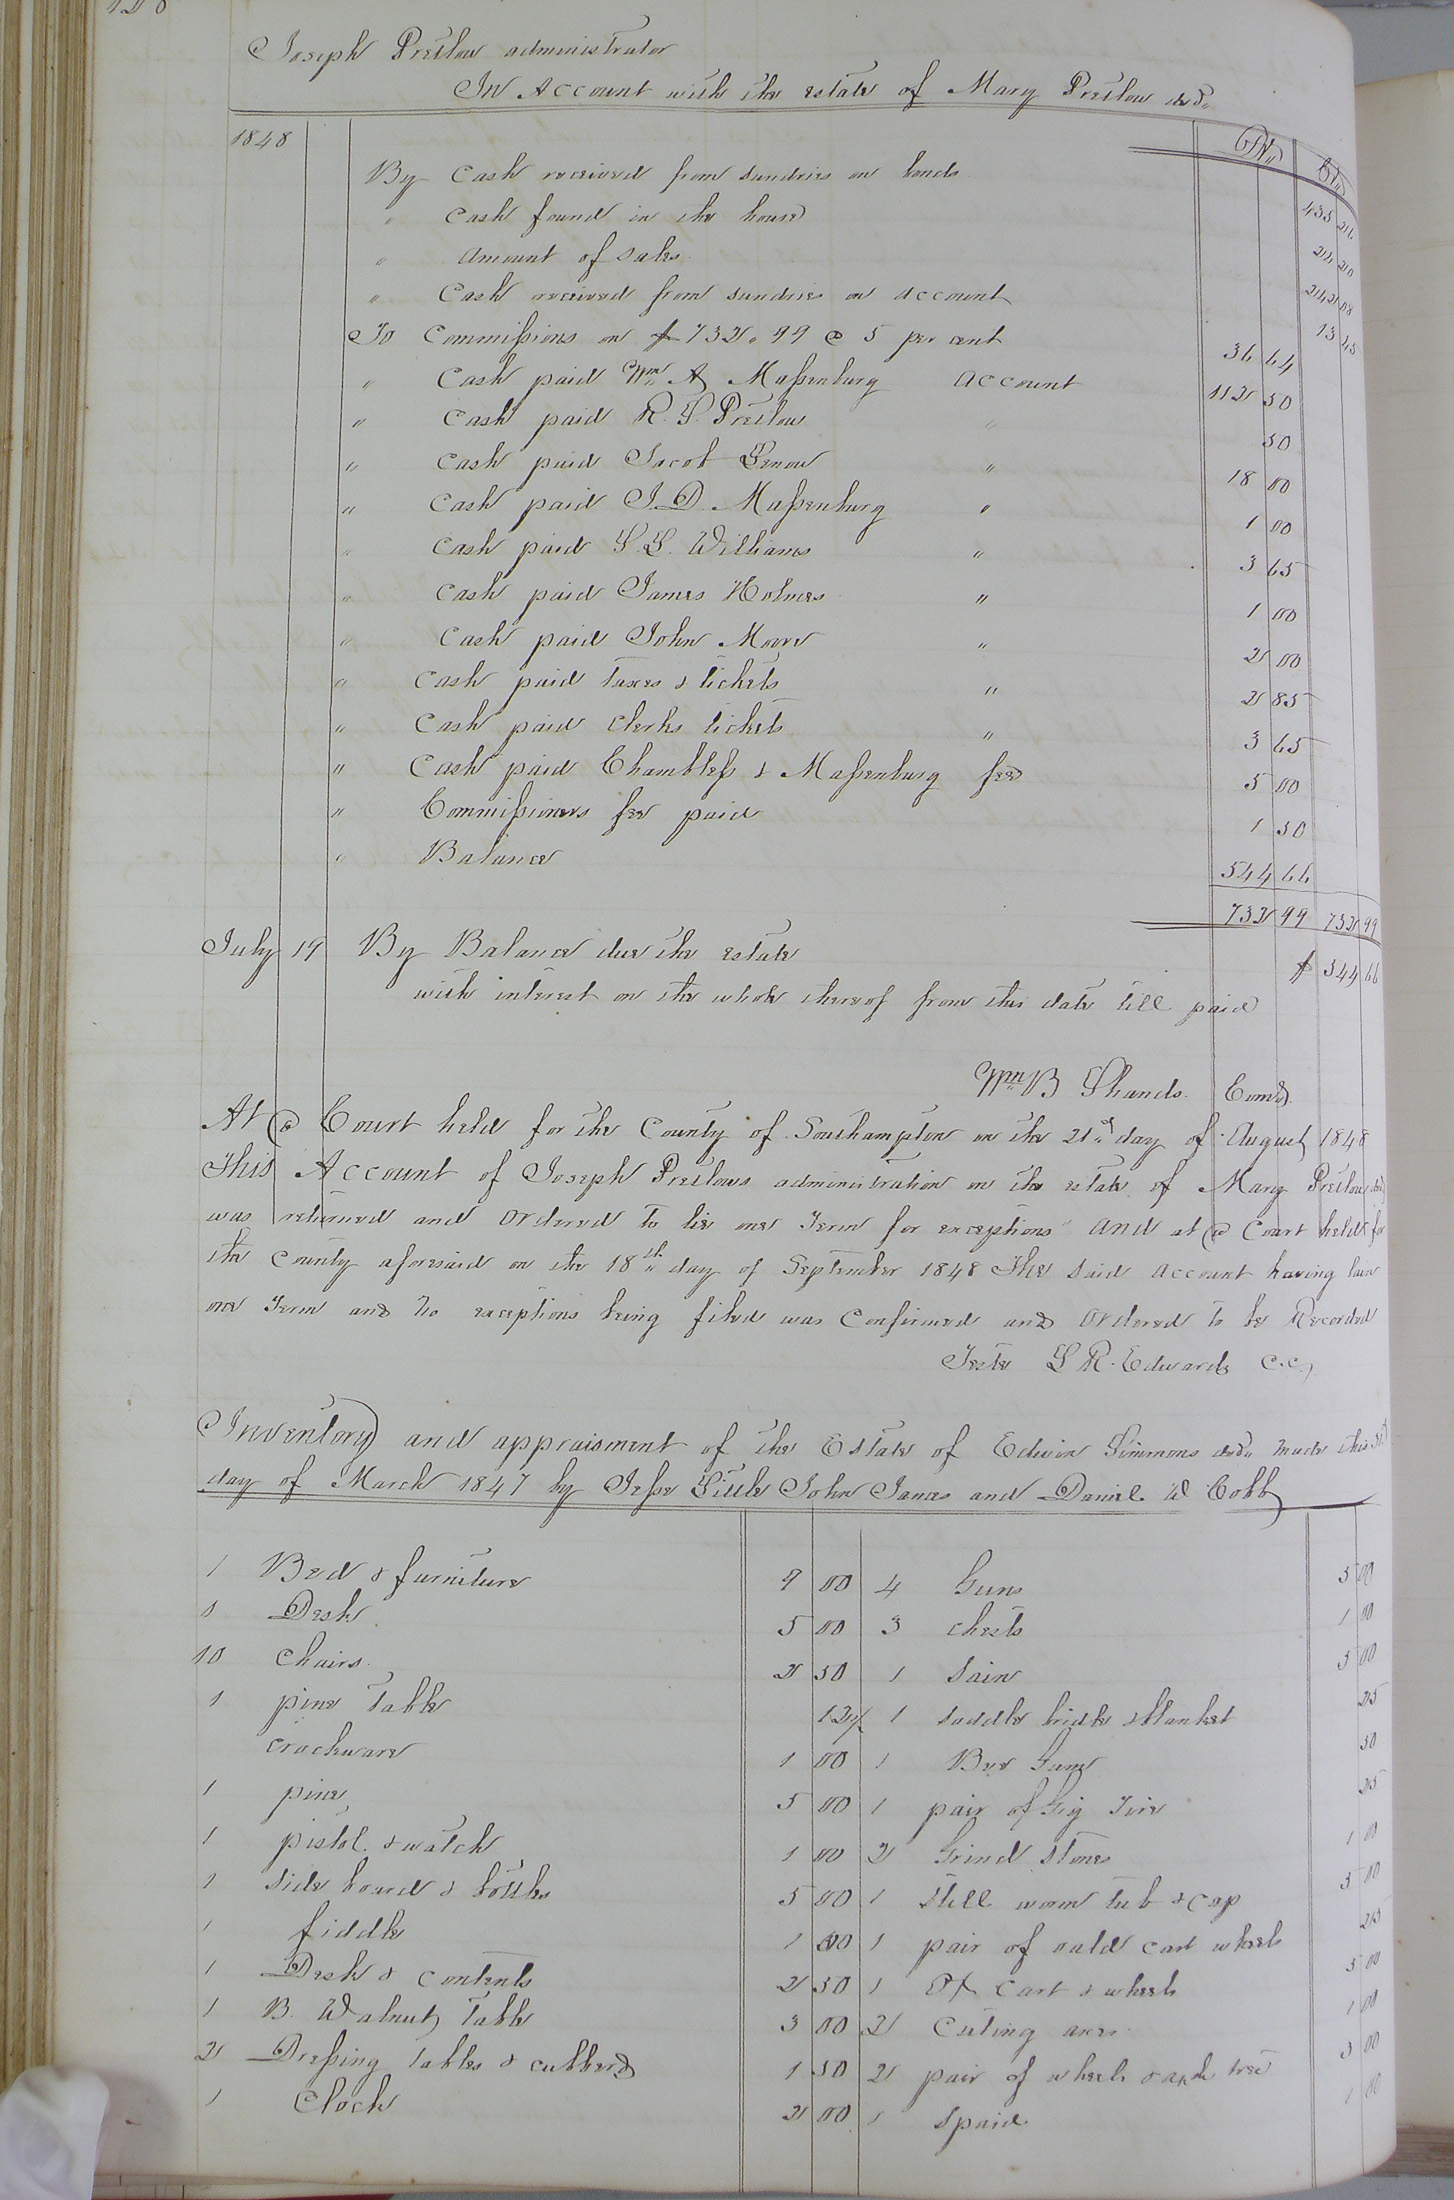 Joseph Pretlow administrator
In Account with the estate of Mary Pretlow decd.
1848 Dr. Cr.
By Cash received from sundries on bonds 435 26
" Cash found in the house
" Amount of sales
" Cash received from sundries on account 13 45
To Commissions on $732.99 @ 5 per cent 36 64
" Cash paid Wm A Massenburg Account 112 50
" Cash paid R. S. Pretlow " 50
" Cash paid Jacob Senow " 18 00
" Cash paid J. D. Massenburg " 1 00
" Cash paid S. S. Williams " 3 65
" Cash paid James Holmes " 1 00
" Cash paid John Moore " 2 00
" Cash paid taxes & tickets " 2 85
" Cash paid Clerks tickets " 3 65
" Cash paid Chambless & Massenburg fee 5 00
" Commissioners fee paid 1 50
" Balance 544 66
732 99 732 99
July 19 By Balance due the estate $ 544 66
with interest on the whole thereof from this date till paid
Wm B Shands Comr.
At a Court held for the County of Southampton on the 21st day of August 1848
This Account of Joseph Pretlows administration on the estate of Mary Pretlow decd
was returned and Ordered to lie one Term for exceptions And at a Court held for
the County aforesaid on the 18th day of September 1848 The said Account having lain
one Term and no exceptions being filed was Confirmed and Ordered to be Recorded
Teste L R. Edwards C.C.
Inventory and appraisment of the Estate of Edwin Simmons decd. made this
day of March 1847 by Jesse Little John James and Daniel W Cobb
1 Bed & furniture 9 00 4 Guns 5 00
1 Desk 5 00 3 chests 1 00
10 Chairs 2 50 1 Sain 5 00
1 pine Table 12½ 1 saddle bridle & blanket 25
Crockware 1 00 1 Bee Gum 50
1 pine 5 00 1 pair of Gig Tire 25
1 pistol & watch 1 00 2 Grind Stones 1 00
1 Side board & bottles 5 00 1 Still worm tub & cap 5 00
1 fiddle 1 00 1 pair of oald cart wheels 25
1 Desk & contents 2 50 1 Ox Cart & wheels 5 00
1 B. Walnut Table 3 00 2 Cuting axes 1 00
2 Dressing tables & cubberd 1 50 2 pair of wheels & axle tree 3 00
1 Clock 2 00 1 Spaid 1 00